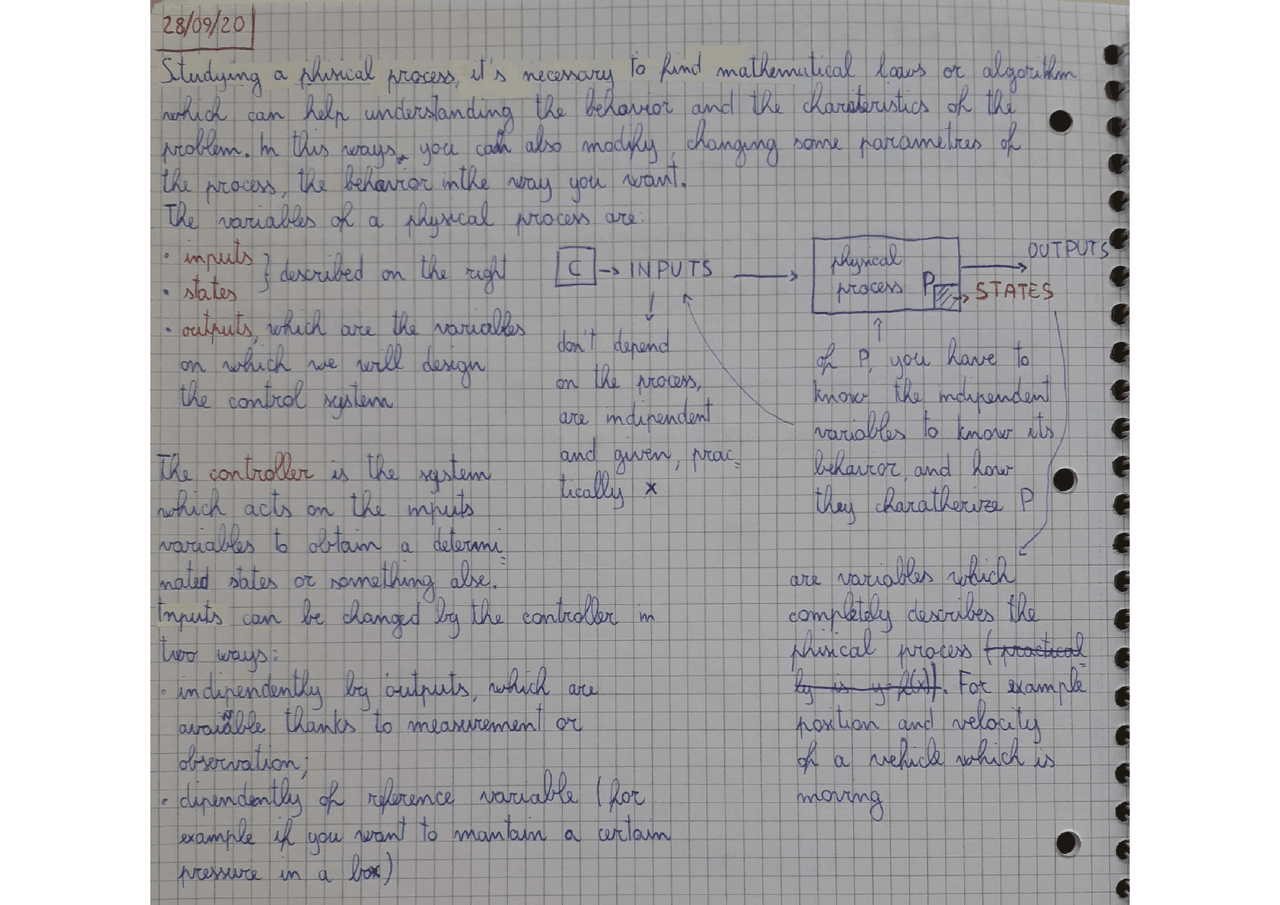 28/09/20
Studying a phisical process, it's necessary to find mathematical laws or algorithm
which can help understanding the behavior and the charateristics of the
problem. In this ways, you can also modify, changing some parametres of
the process, the behavior in the way you want.
The variables of a physical process are:
· inputs
· states
} described on the right
· outputs, which are the variables
on which we will design
the control system
C → INPUTS
physical
process P
OUTPUTS
STATES
don't depend
on the process,
are indipendent
and given, prac=
tically x
of P, you have to
know the indipendent
variables to know its
behavior, and how
they charatherize P
The controller is the system
which acts on the inputs
variables to obtain a determi=
nated states or something alse.
Inputs can be changed by the controller in
two ways:
· indipendently by outputs, which are
available thanks to measurement or
observation;
· dipendently of reference variable (for
example if you want to mantain a certain
pressure in a box)
are variables which
completely describes the
phisical process (practical=
ly is y=f(x)). For example
position and velocity
of a vehicle which is
moving